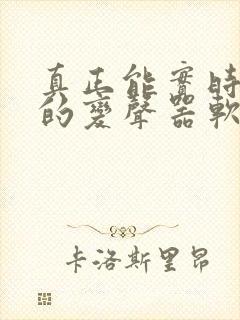 真正能實時
的變聲器軟
卡洛斯里昂